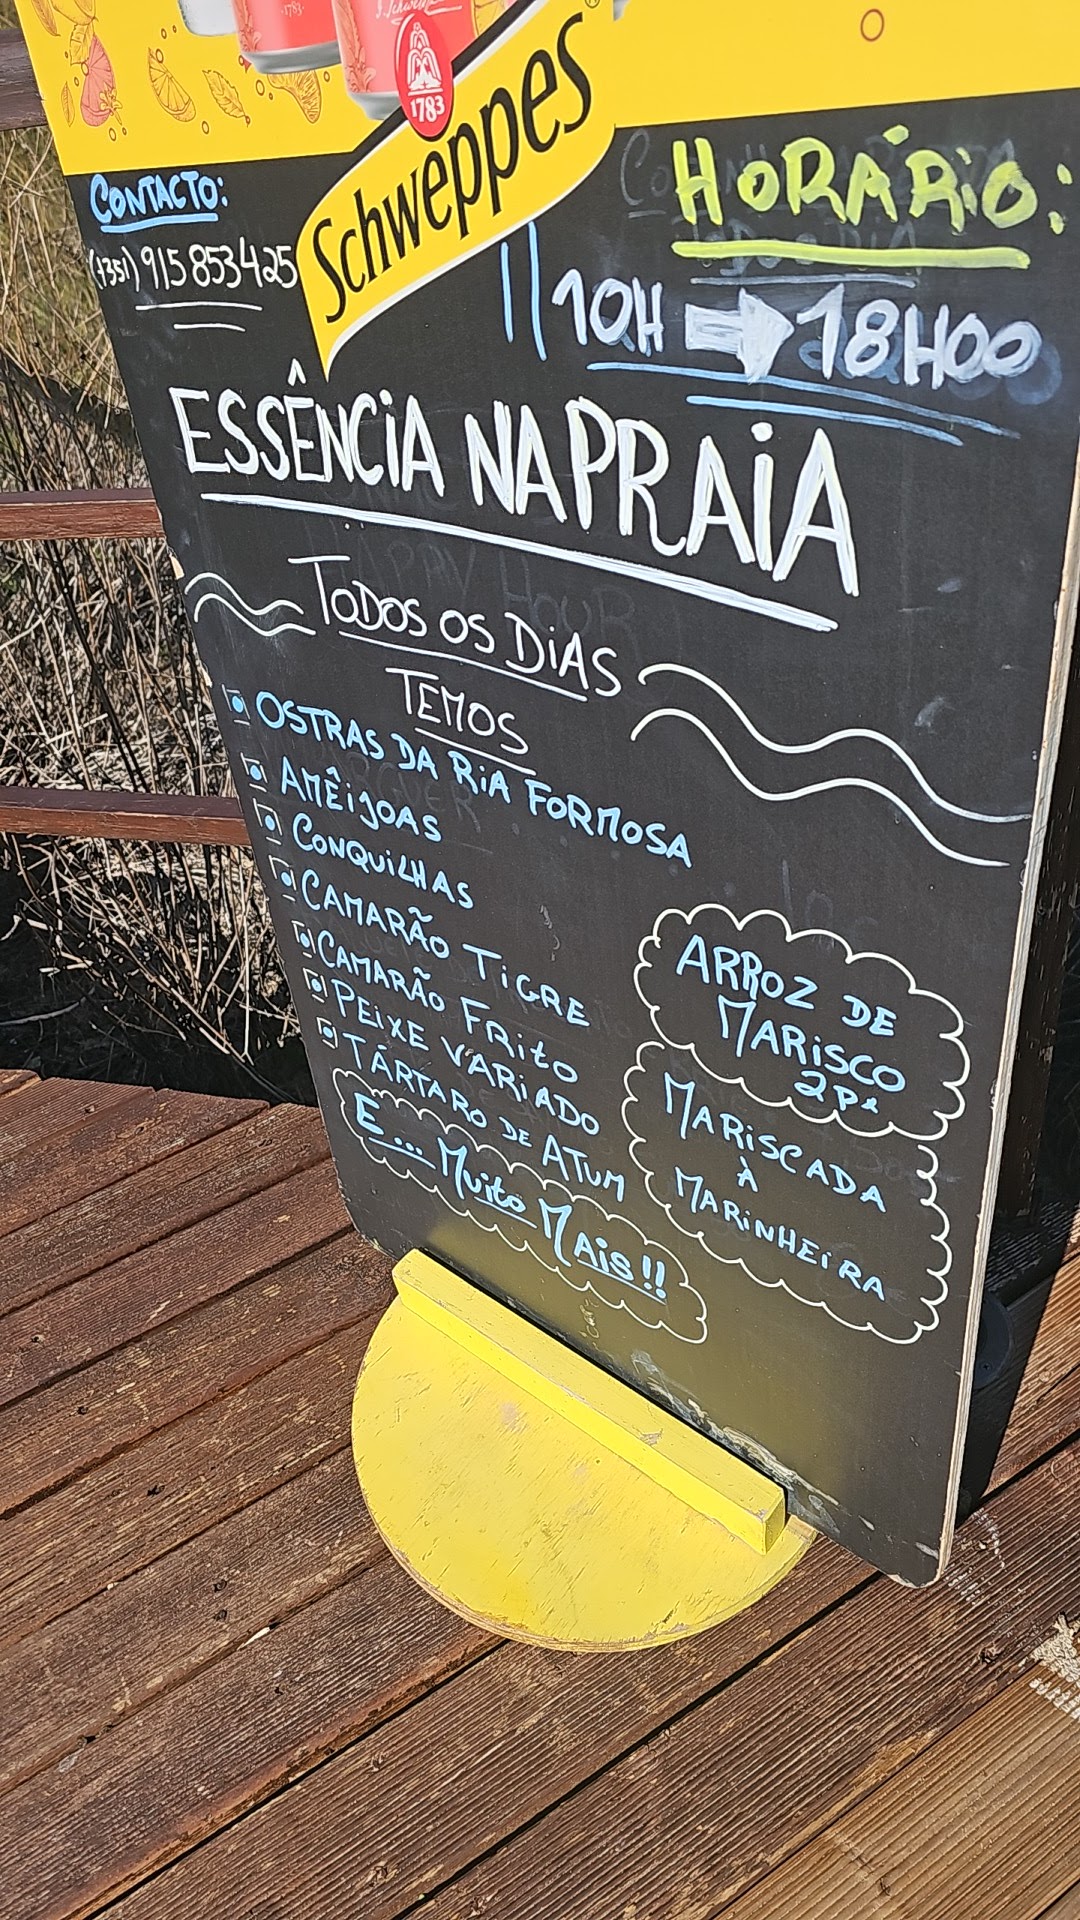 1783
Schweppes
CONTACTO:
(+351) 915 853 425
HORÁRIO:
10H ➡ 18H00
ESSÊNCIA NA PRAIA
TODOS OS DIAS
TEMOS
OSTRAS DA RIA FORMOSA
AMÊIJOAS
CONQUILHAS
CAMARÃO TIGRE
CAMARÃO FRITO
PEIXE VARIADO
TÁRTARO DE ATUM
E... MUITO MAIS!!
ARROZ DE
MARISCO
MARISCADA
À
MARINHEIRA